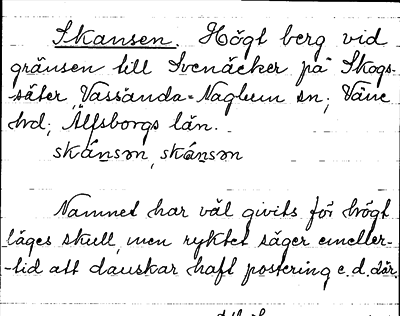 Skansen. Högt berg vid
gränsen till Svenäcker på Skogs-
säter, Vassända-Naglum sn; Väne
hrd; Älfsborgs län.
skánsən, skánsən
Namnet har väl givits för högt
läges skull, men ryktet säger emeller-
-tid att danskar haft postering e.d. där.